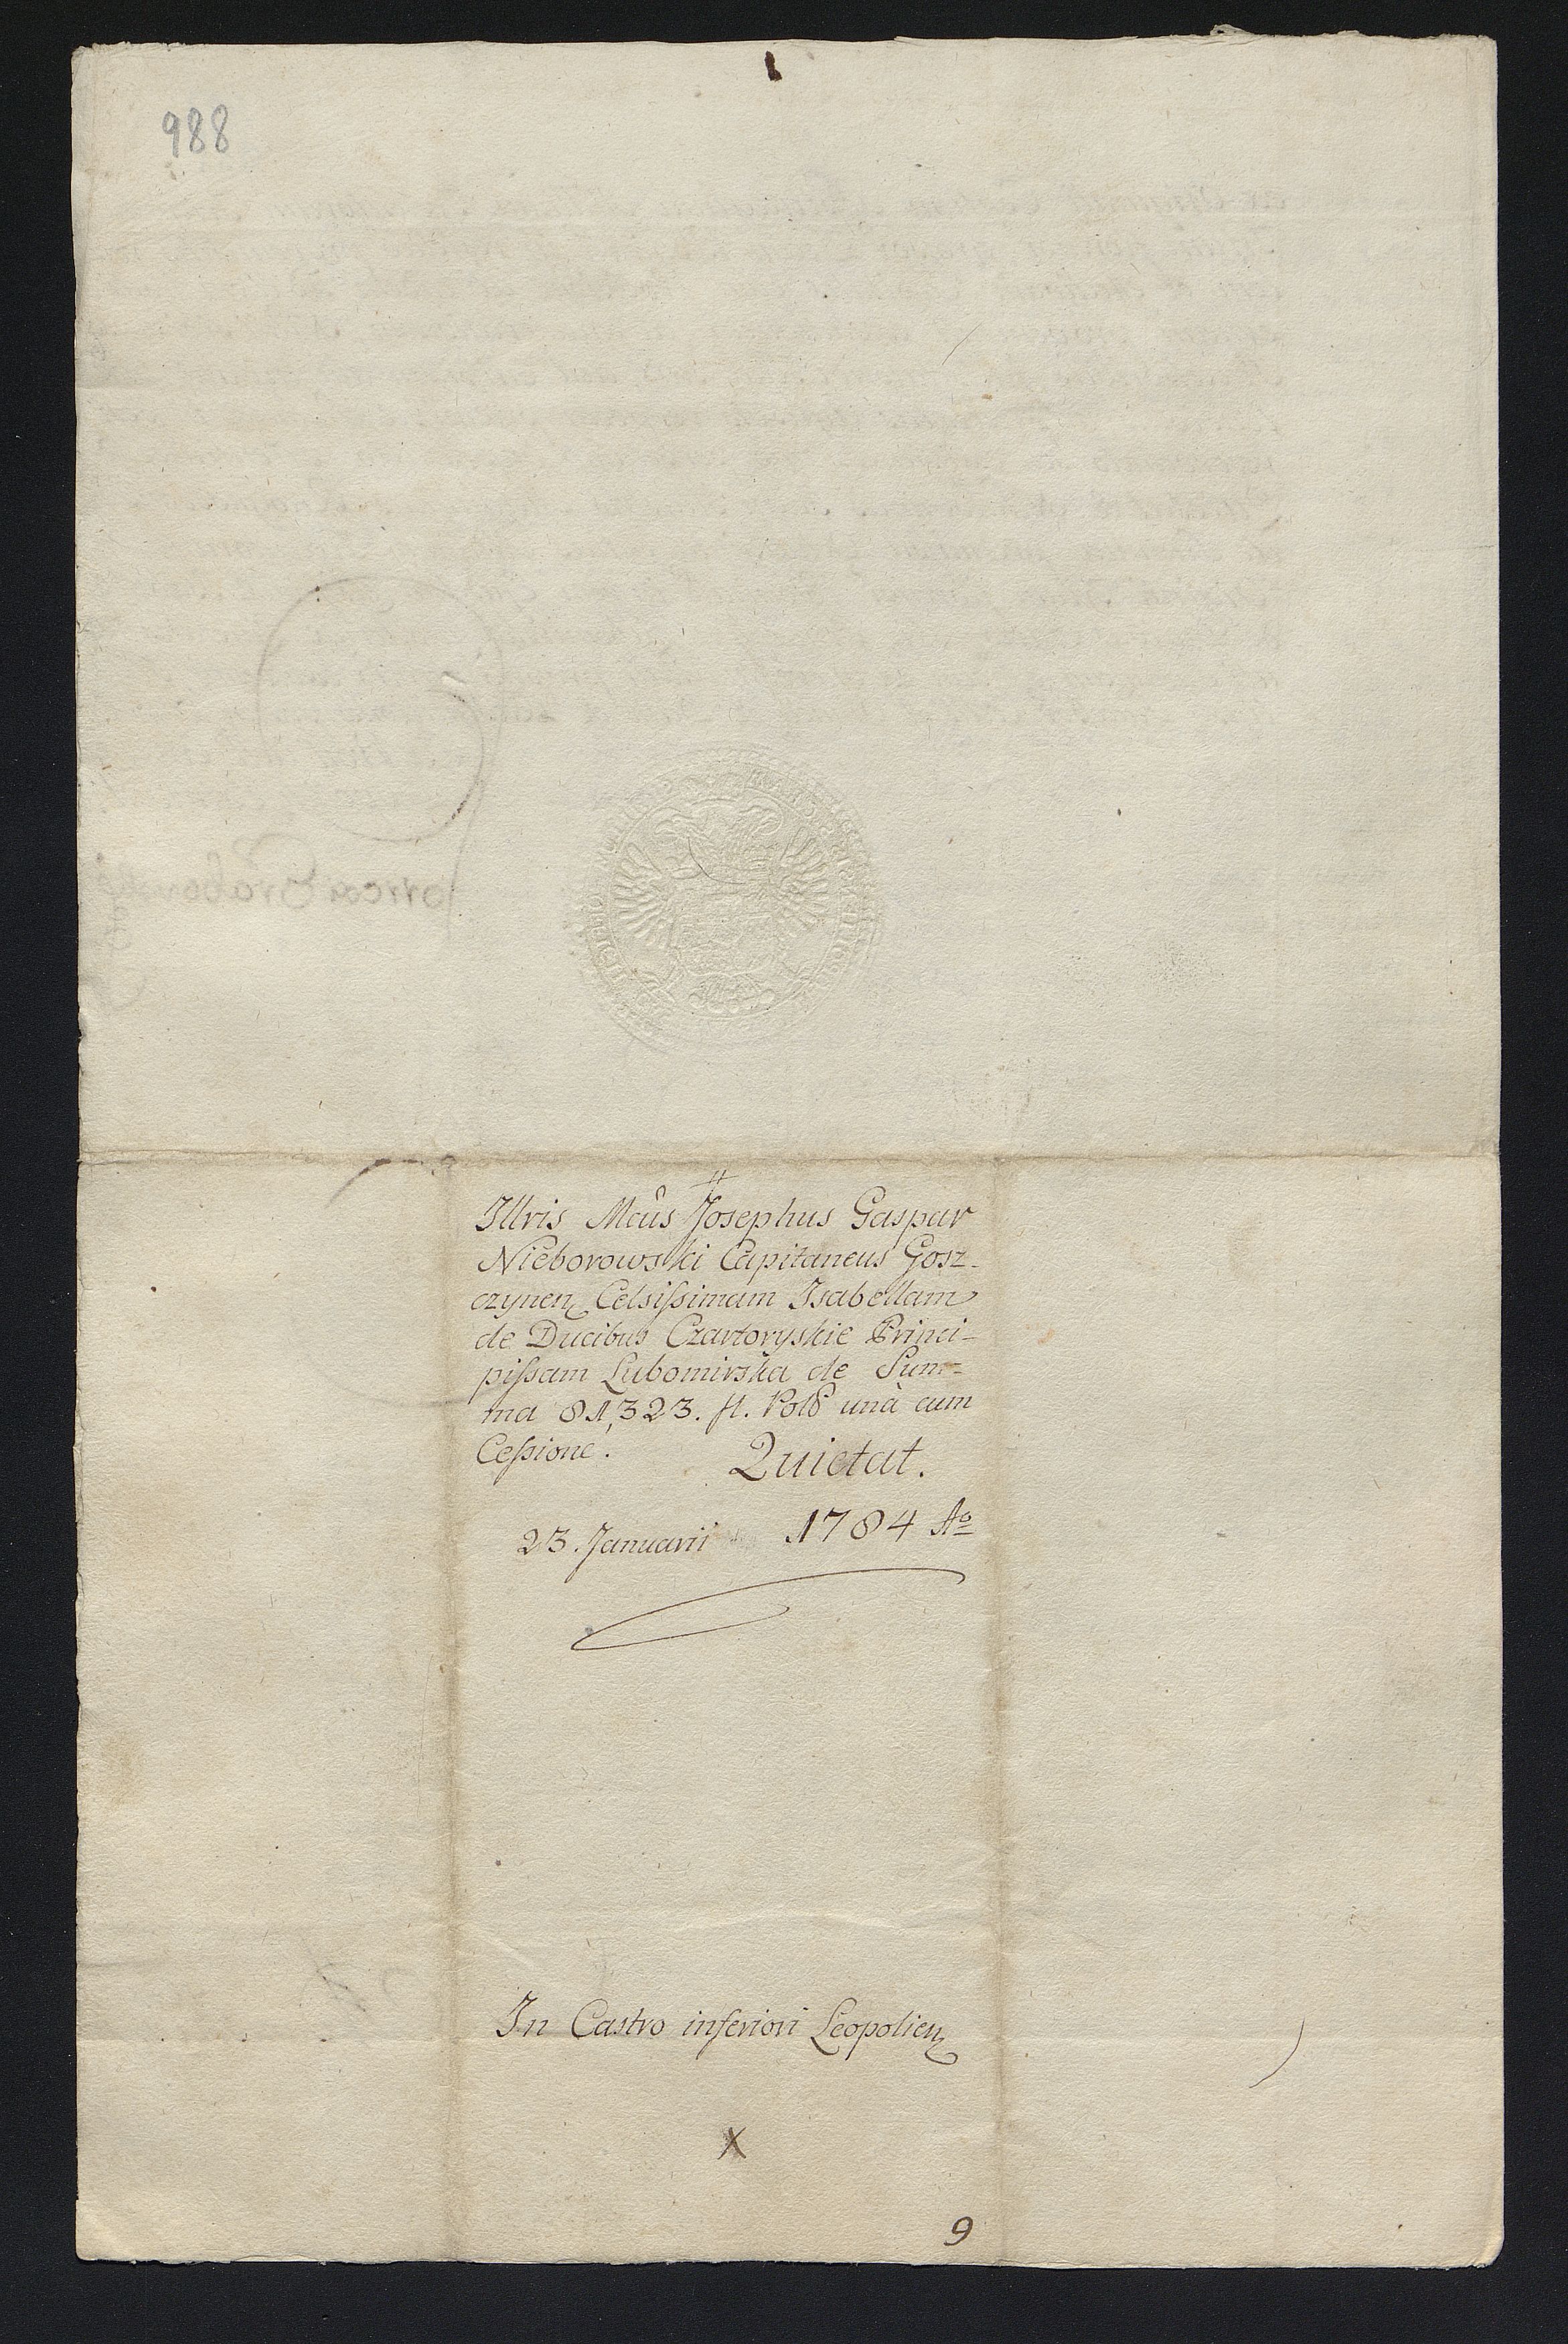 988
#
Illris Mcus Josephus Gaspar
Nieborowski Capitaneus Gosz-
czynen Celsissimam Isabellam
de Ducibus Czartoryskie Princi-
pissam Lubomirska de Sum-
ma 81,323. fl. Pol unà cum
Cessione. Quietat.
23. Januarii 1784 Ao
In Castro inferiori Leopolien
X
9